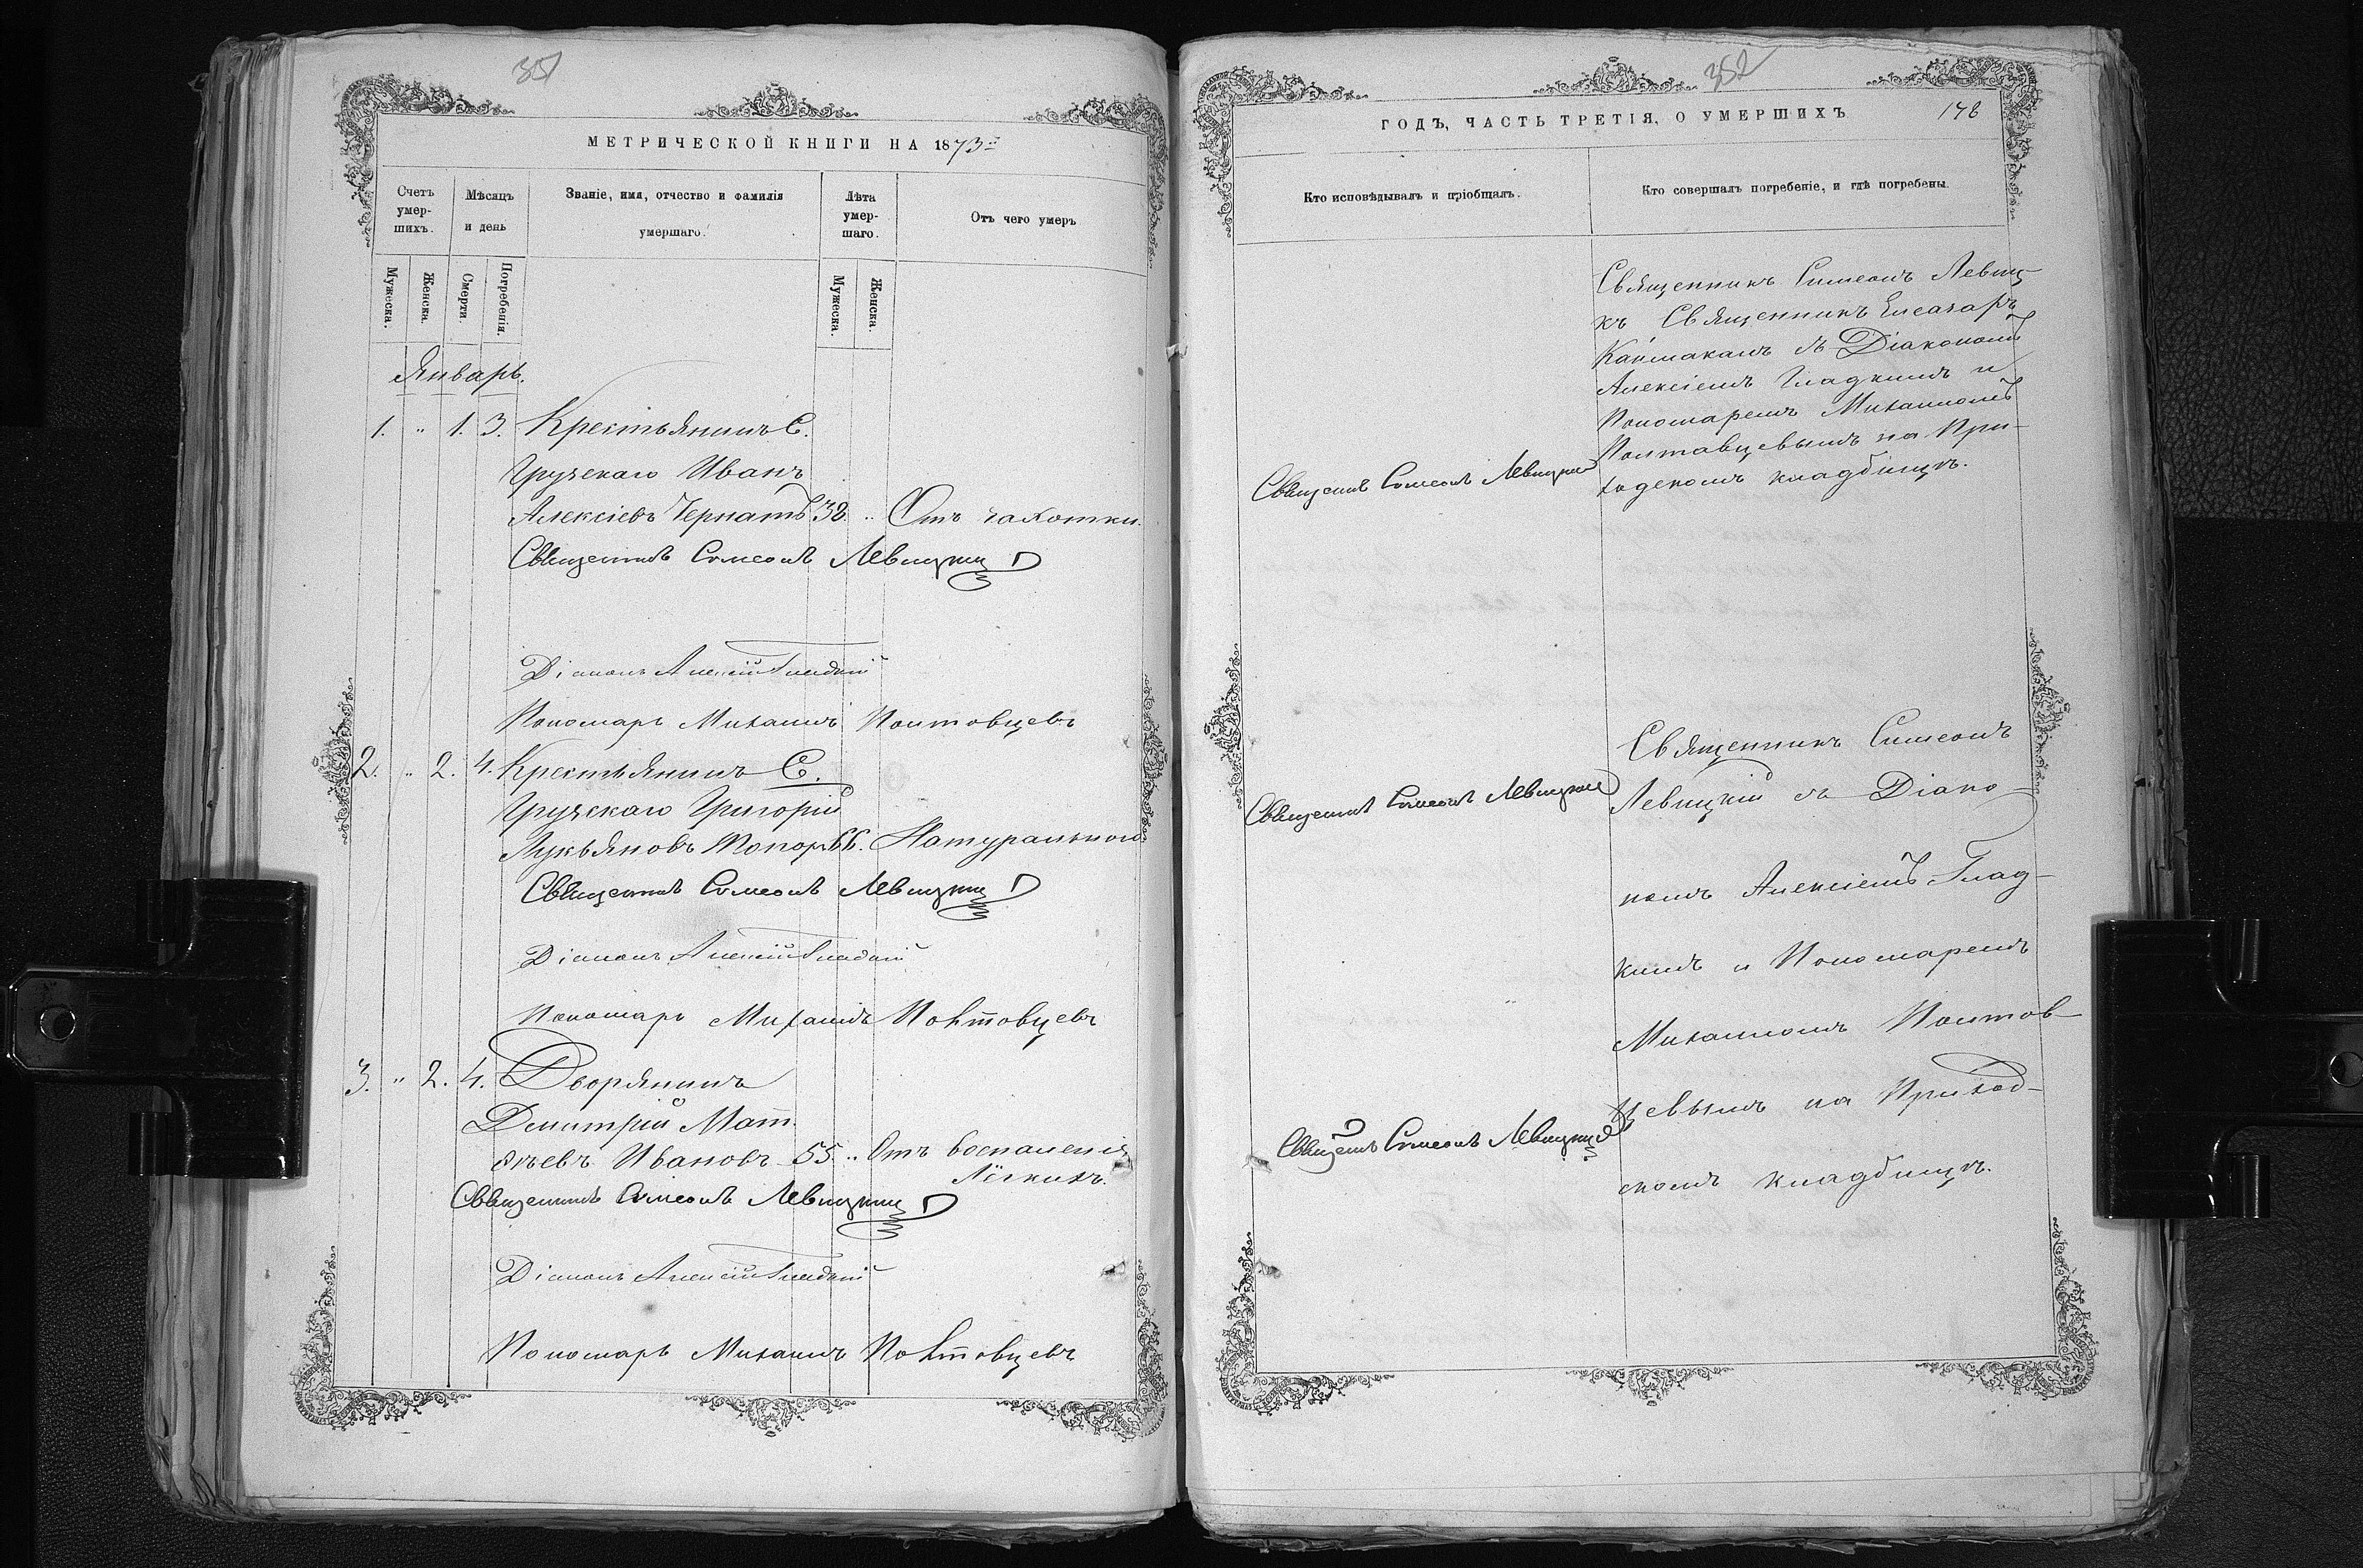 351
МЕТРИЧЕСКОЙ КНИГИ НА 1873й
Счетъ умер-шихъ.
Мѣсяцъ и день
Званіе, имя, отчество и фамилія умершаго.
Лѣта умер-шаго.
Отъ чего умеръ
Мужеска.
Женска.
Смерти.
Погребенія.
Мужеска.
Женска.
Январь.
1. " 1. 3. Крестьянинъ С.
Грузскаго Иванъ
Алексіевъ Чернатъ 38. " Отъ чахотки.
Священникъ Симеонъ Левицкій
Діаконъ Алексій Гладкій
Пономарь Михаилъ Полтовцевъ
2. " 2. 4. Крестьянинъ С.
Грузскаго Григорій
Лукьяновъ 66. Натурально
Священникъ Симеонъ Левицкій
Діаконъ Алексій Гладкій
Пономарь Михаилъ Полтовцевъ
3. " 2. 4. Дворянинъ
Димитрій Мат.
ѳѣевъ Ивановъ 55. " Отъ воспаленія
лёгкихъ.
Священникъ Симеонъ Левицкій
Діаконъ Алексій Гладкій
Пономарь Михаилъ Полтовцевъ
352
ГОДЪ, ЧАСТЬ ТРЕТІЯ, О УМЕРШИХЪ
Кто исповѣдывалъ и пріобщалъ.
Кто совершалъ погребеніе, и гдѣ погребены.
Священникъ Симеонъ Левиц-
къ Священникъ Елеазаръ
Каймаканъ съ Діакономъ
Алексіемъ Гладкимъ и
Пономаремъ Михаиломъ
Полтавцевымъ на При-
ходскомъ кладбищѣ.
Священникъ Симеонъ Левицкій
Священникъ Симеонъ
Левицкій съ Діако-
номъ Алексіемъ Глад-
кимъ и Пономаремъ
Михаиломъ Полтов-
цевымъ на Приход-
скомъ кладбищѣ.
Священникъ Симеонъ Левицкій
Священникъ Симеонъ Левицкій